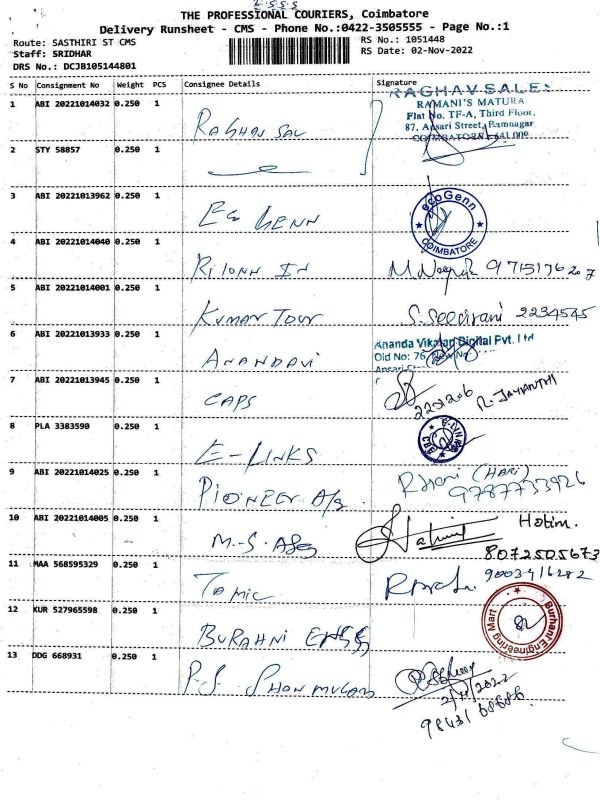 THE PROFESSIONAL COURIERS, Coimbatore
Delivery Runsheet - CMS - Phone No.:0422-3505555 - Page No.:1
Route: SASTHIRI ST CMS
RS No.: 1051448
Staff: SRIDHAR
RS Date: 02-Nov-2022
DRS No.: DCJB105144801
S No Consignment No Weight PCS Consignee Details Signature
1 ABI 20221014032 0.250 1 RAGHAV SALES
RAMANI'S MATURA
Flat No. TF-A, Third Floor,
87, Ansari Street, Ramnagar
COIMBATORE - 641 009
2 STY 58857 0.250 1
3 ABI 20221013962 0.250 1 ECO GENN ecoGenn COIMBATORE
4 ABI 20221014040 0.250 1
5 ABI 20221014001 0.250 1 KUMAR TOUR 2234545
6 ABI 20221013933 0.250 1 ANANDAVI Ananda Vikatan Digital Pvt. Ltd
Old No: 76, New No
Ansari
7 ABI 20221013945 0.250 1 CAPS R. JAYANTHI
8 PLA 3383590 0.250 1 E-LINKS
9 ABI 20221014025 0.250 1 PIONEER (HARI)
9787733926
10 ABI 20221014005 0.250 1 Hatim
8072505673
11 MAA 568595329 0.250 1 TOMIC 9003416282
12 KUR 527965598 0.250 1 BURAHNI ENGG Burhani Engineering Mart
13 DDG 668931 0.250 1 P.S. SHANMUGAM
2/11/2022
98431 68686